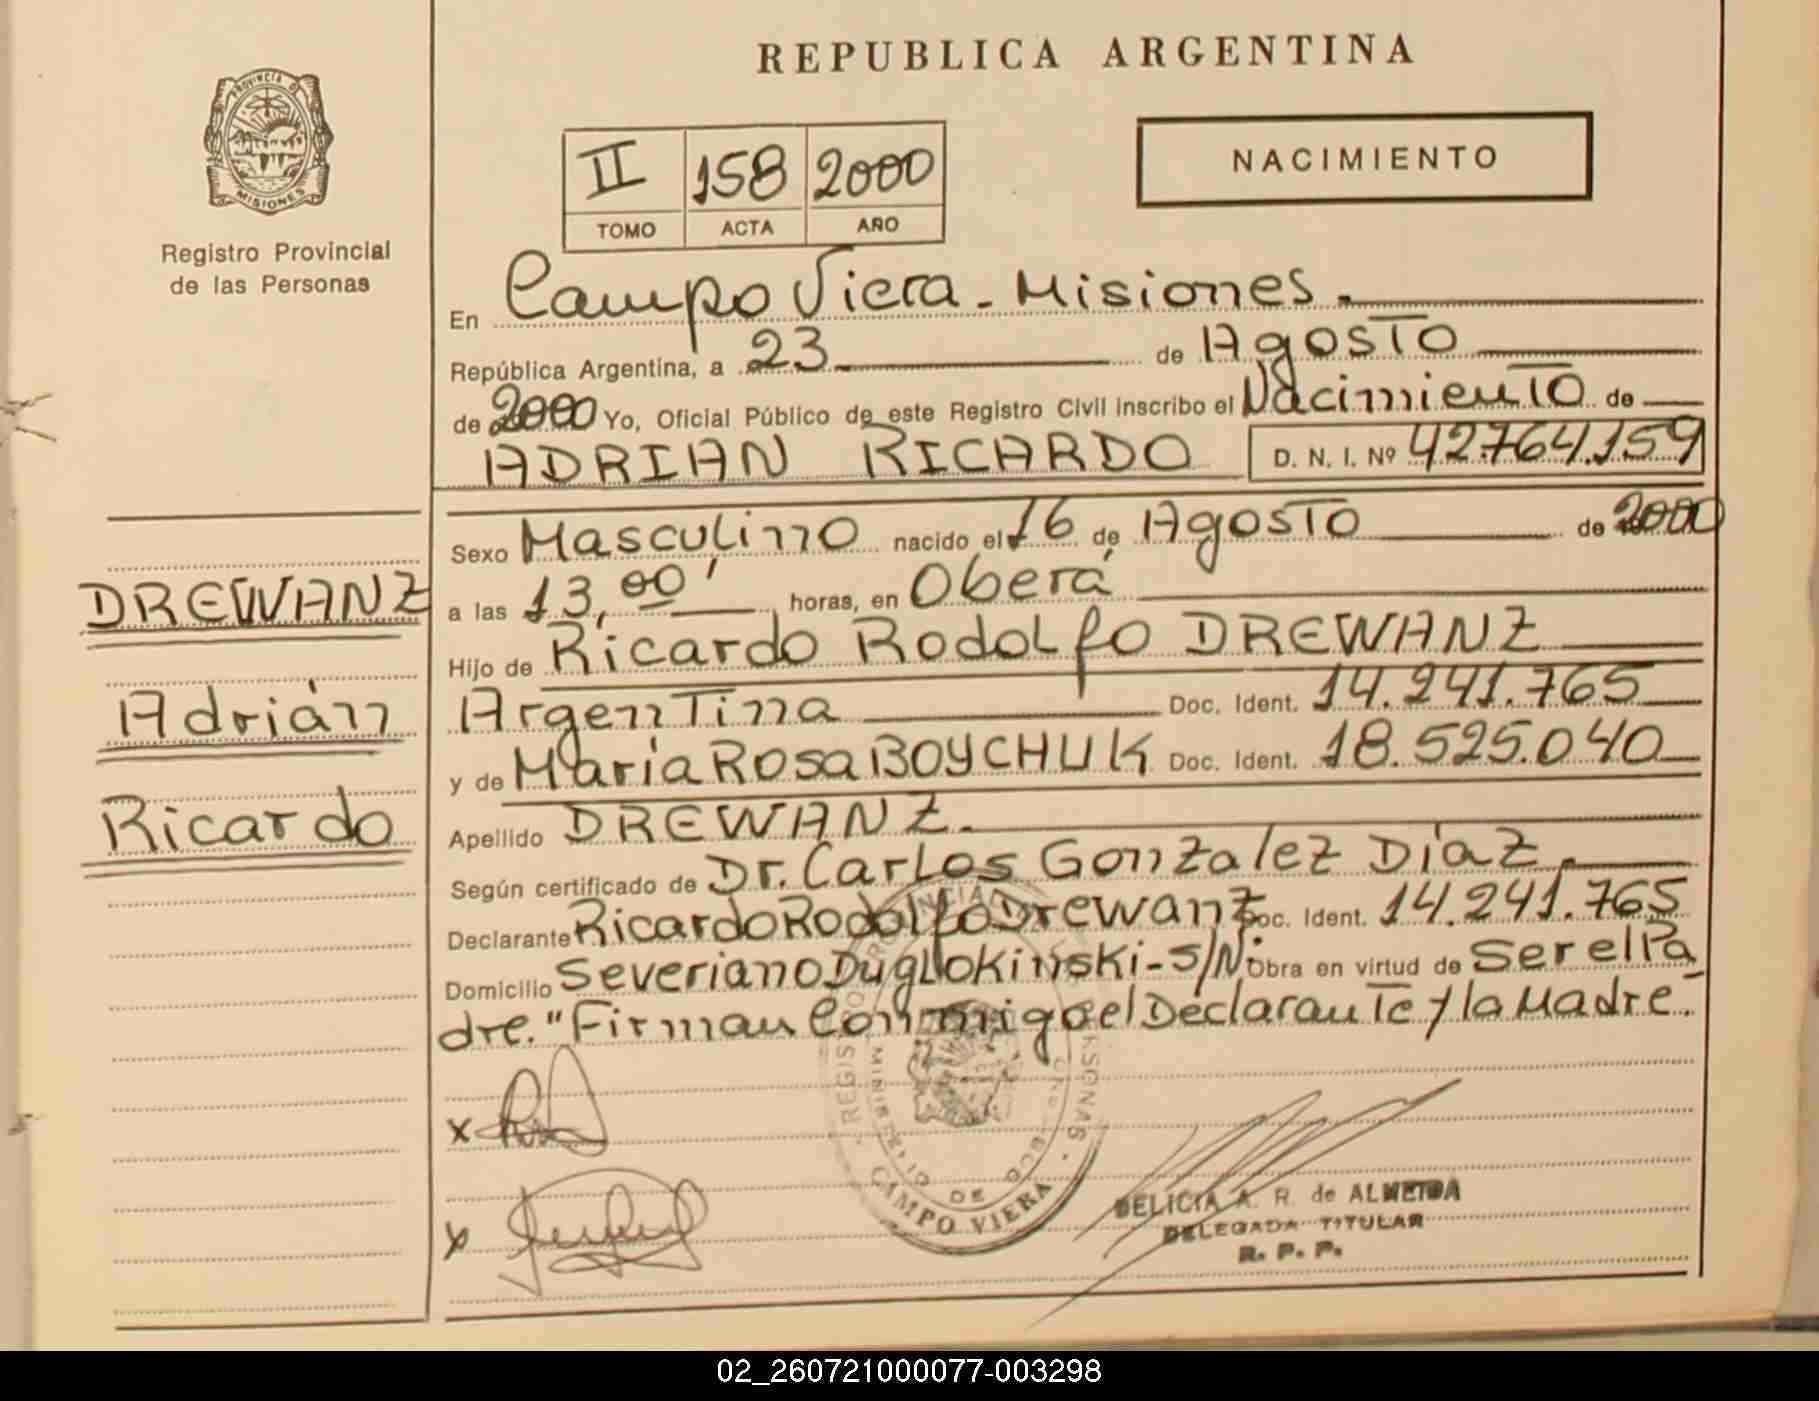 REPUBLICA ARGENTINA
PROVINCIA DE
MISIONES
Registro Provincial
de las Personas
II 158 2000
TOMO ACTA AÑO
NACIMIENTO
En Campo Viera - Misiones.
República Argentina, a 23 de Agosto
de 2000 Yo, Oficial Público de este Registro Civil inscribo el Nacimiento de
ADRIAN RICARDO D. N. I. Nº 42.764.159
DREWANZ
Adrián
Ricardo
Sexo Masculino nacido el 16 de Agosto de 2000
a las 13,00' horas, en Oberá
Hijo de Ricardo Rodolfo DREWANZ
Argentina Doc. Ident. 14.241.765
y de María Rosa BOYCHUK Doc. Ident. 18.525.040
Apellido DREWANZ.
Según certificado de Dr. Carlos Gonzalez Díaz.
Declarante Ricardo Rodolfo Drewanz Doc. Ident. 14.241.765
Domicilio Severiano Duglokinski - S/N. Obra en virtud de Ser el Pa
dre. "Firman Conmigo el Declarante y la Madre.
x
x
CAMPO VIERA
DELICIA A. R. de ALMEIDA
DELEGADA TITULAR
R. P. P.
02_260721000077-003298